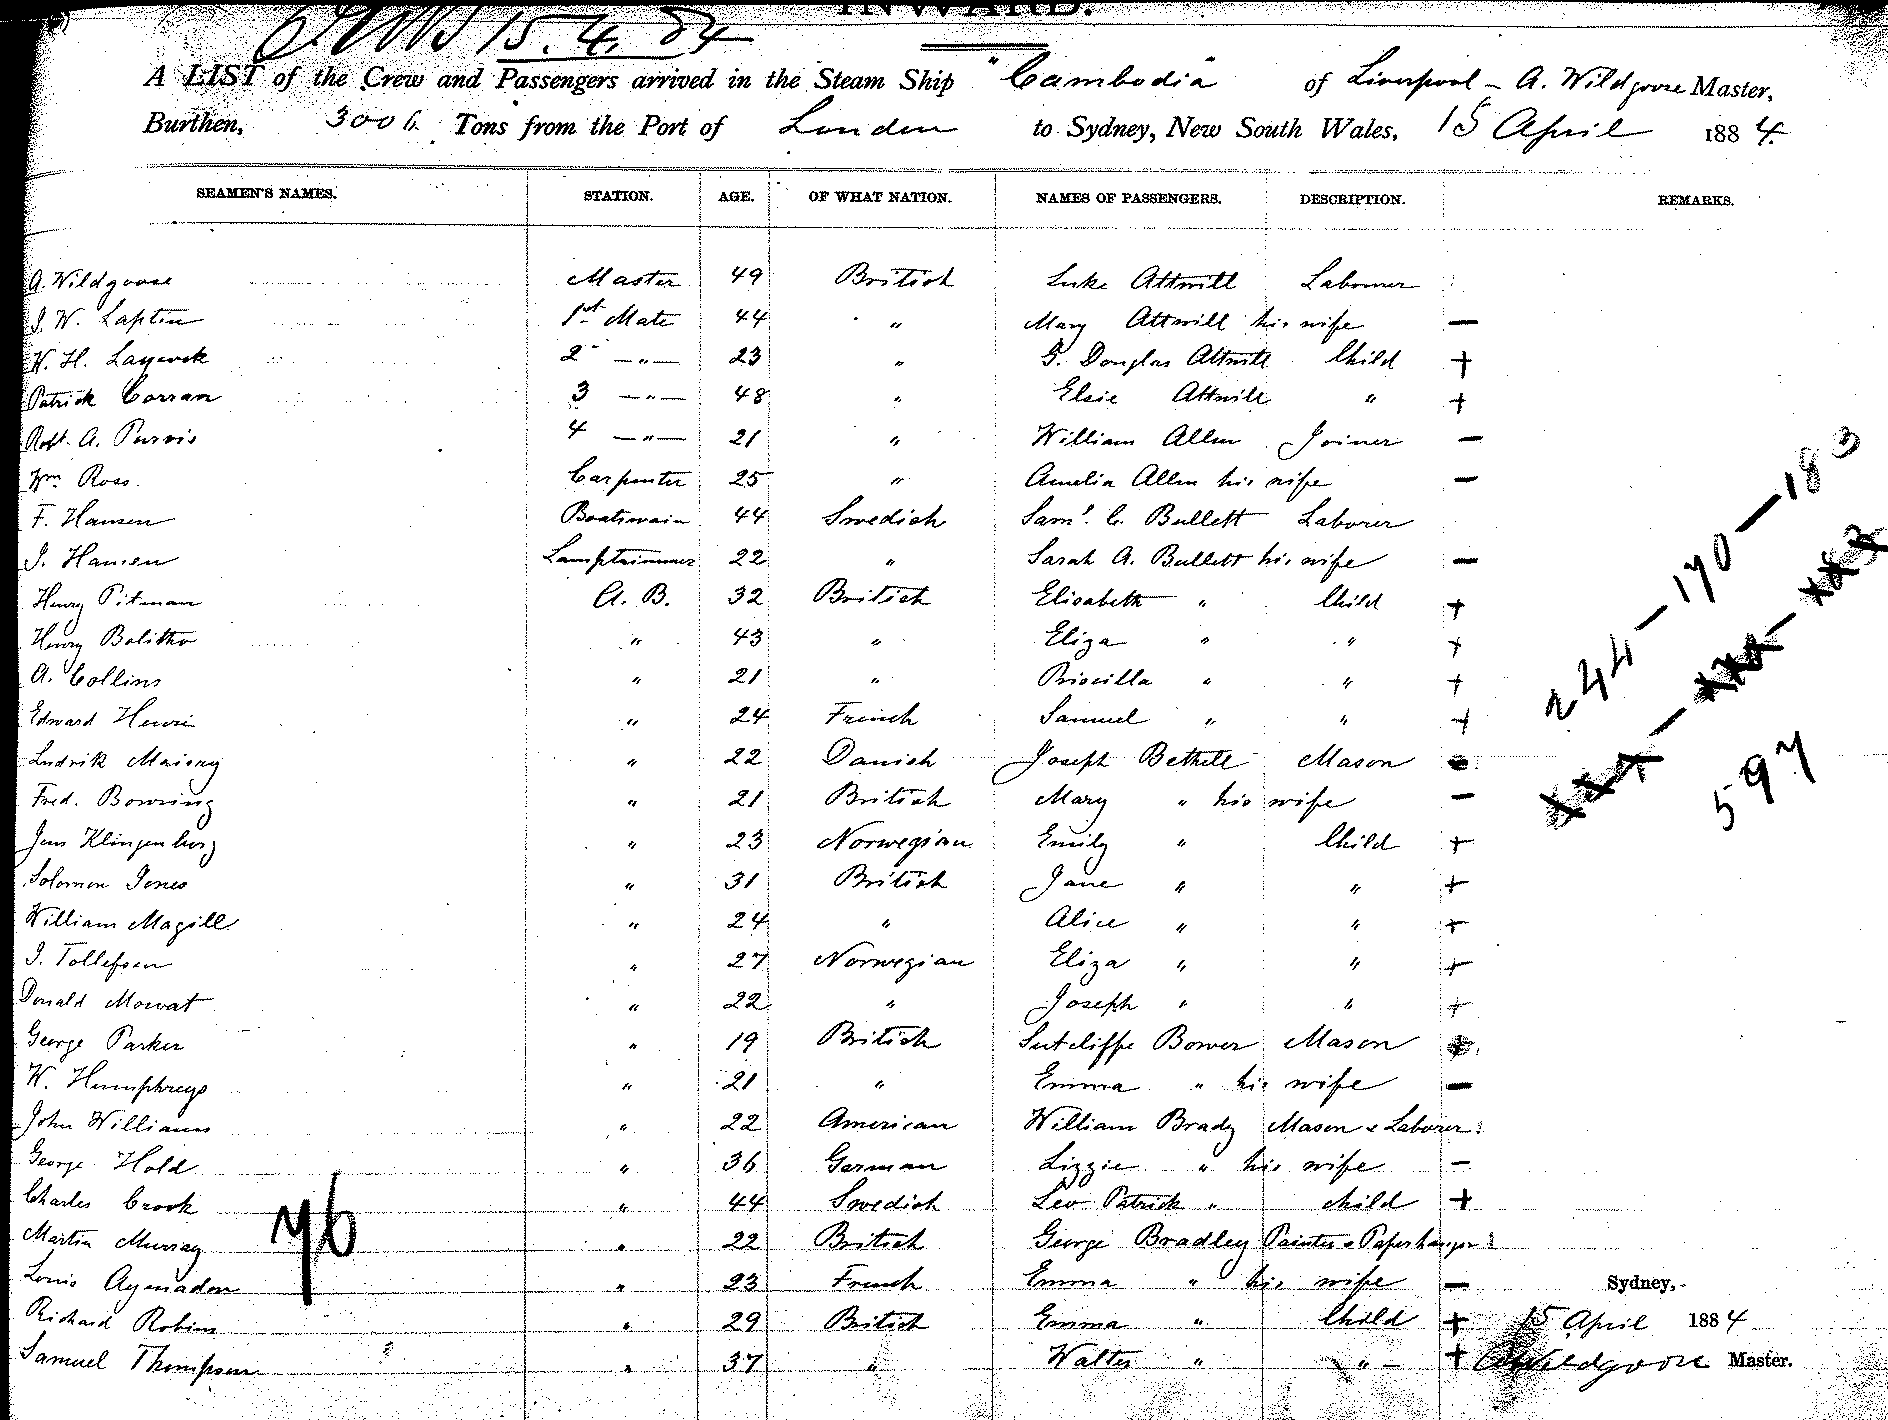 INWARD.
15.4.84
A LIST of the Crew and Passengers arrived in the Steam Ship "Cambodia" of Liverpool - A. Wildgoose Master,
Burthen, 3006 Tons from the Port of London to Sydney, New South Wales, 15 April 1884.
SEAMEN'S NAMES. STATION. AGE. OF WHAT NATION. NAMES OF PASSENGERS. DESCRIPTION. REMARKS.
A. Wildgoose Master 49 British Luke Attwill Labourer
J. W. 1st Mate 44 " Mary Attwill his wife —
W. H. Laycock 2 —"— 23 " G. Douglas Attwill Child +
Patrick Corran 3 —"— 48 " Elsie Attwill " +
Robt. A. Purvis 4 —"— 21 " William Allen Joiner —
Wm Ross Carpenter 25 " Amelia Allen his wife —
F. Hansen Boatswain 44 Swedish Saml. C. Bullett Laborer
J. Hansen Lamptrimmer 22 " Sarah A. Bullett his wife —
Henry Pitman A. B. 32 British Elisabeth " Child +
Henry Bolitho " 43 " Eliza " " +
A. Collins " 21 " Priscilla " " +
Edward Henri " 24 French Samuel " " +
Ludvik " 22 Danish Joseph Bethell Mason
Fred. Bowring " 21 British Mary " his wife —
Jens Klingenberg " 23 Norwegian Emily " Child +
Solomon Jones " 31 British Jane " " +
William Magill " 24 " Alice " " +
J. Tollefsen " 27 Norwegian Eliza " " +
Donald Mowat " 22 " Joseph " " +
George Parker " 19 British Sutcliffe Bower Mason
W. Humphreys " 21 " Emma " his wife —
John Williams " 22 American William Brady Mason & Laborer
George Hold " 36 German Lizzie " his wife —
Charles Crook " 44 Swedish Leo Patrick " child +
Martin Murray " 22 British George Bradley Painter & Paperhanger
Louis " 23 French Emma " his wife —
Richard Robins " 29 British Emma " Child +
Samuel Thompson " 37 " Walter " " +
76
244—170—183
597
Sydney,
15 April 1884
A Wildgoose Master.